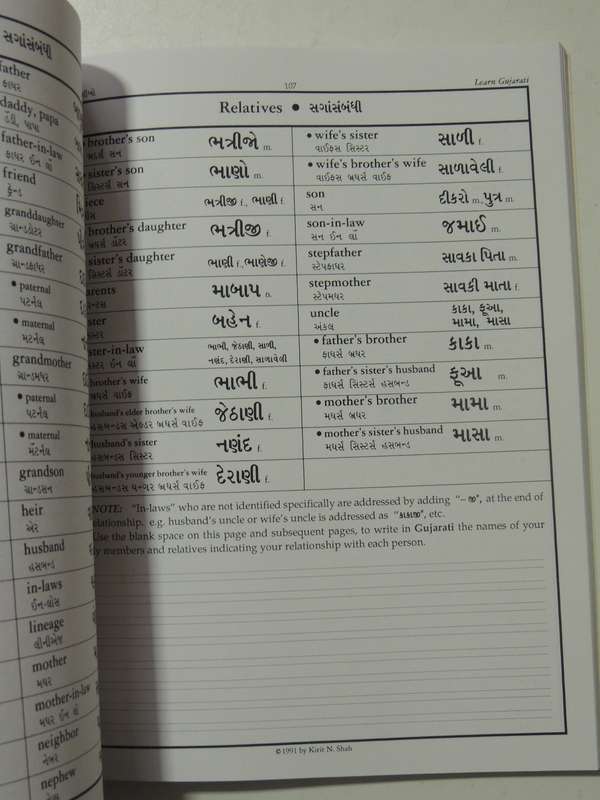 સગાંસંબંધી
father
ફાધર
daddy, papa
ડૅડી, પાપા
father-in-law
ફાધર ઈન લૉ
friend
ફ્રેન્ડ
granddaughter
ગ્રાન્ડડૉટર
grandfather
ગ્રાન્ડફાધર
• paternal
પટર્નલ
• maternal
મટર્નલ
grandmother
ગ્રાન્ડમધર
• paternal
પટર્નલ
• maternal
મૅટર્નલ
grandson
ગ્રાન્ડસન
heir
એર
husband
હસબન્ડ
in-laws
ઈન-લૉસ
lineage
લીનીએજ
mother
મધર
mother-in-law
મધર ઈન લૉ
neighbor
નેબર
nephew
107
Learn Gujarati
Relatives • સગાંસંબંધી
brother's son ભત્રીજો m.
સન
sister's son ભાણો m.
સિસ્ટર્સ સન
ભત્રીજી f., ભાણી f.
brother's daughter ભત્રીજી f.
બ્રધર્સ ડૉટર
sister's daughter ભાણી f.,ભાણેજી f.
સિસ્ટર્સ ડૉટર
માબાપ n.
બહેન f.
ભાભી, જેઠાણી, સાળી,
નણંદ, દેરાણી, સાળાવેલી f.
brother's wife ભાભી f.
બ્રધર્સ વાઈફ
husband's elder brother's wife જેઠાણી f.
હસબન્ડસ એલ્ડર બ્રધર્સ વાઈફ
husband's sister નણંદ f.
હસબન્ડસ સિસ્ટર
husband's younger brother's wife દેરાણી f.
હસબન્ડસ યન્ગર બ્રધર્સ વાઈફ
• wife's sister સાળી f.
વાઈફસ સિસ્ટર
• wife's brother's wife સાળાવેલી f.
વાઈફસ બ્રધર્સ વાઈફ
son દીકરો m.,પુત્ર m.
સન
son-in-law જમાઈ m.
સન ઈન લૉ
stepfather સાવકા પિતા m.
સ્ટેપફાધર
stepmother સાવકી માતા f.
સ્ટેપમધર
uncle કાકા, ફૂઆ,
અંકલ મામા, માસા m.
• father's brother કાકા m.
ફાધર્સ બ્રધર
• father's sister's husband ફૂઆ m.
ફાધર્સ સિસ્ટર્સ હસબન્ડ
• mother's brother મામા m.
મધર્સ બ્રધર
• mother's sister's husband માસા m.
મધર્સ સિસ્ટર્સ હસબન્ડ
NOTE: "In-laws" who are not identified specifically are addressed by adding "–જી", at the end of
relationship. e.g. husband's uncle or wife's uncle is addressed as "કાકાજી", etc.
Use the blank space on this page and subsequent pages, to write in Gujarati the names of your
members and relatives indicating your relationship with each person.
©1991 by Kirit N. Shah